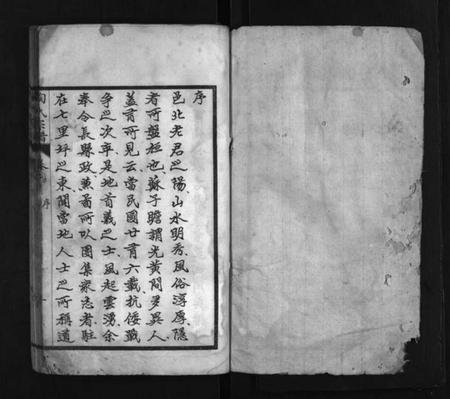 序
邑北老君之陽山水明秀風俗淳厚隱
者所盤桓也蘇子瞻謂光黃間多異人
蓋有所見云當民國廿有六載抗倭戰
爭之次年是地首義之士風起雲湧余
奉令長縣政黃昌所以團集眾志者駐
在七里坪之東閒當地人士之所稱道
氏宗譜
序